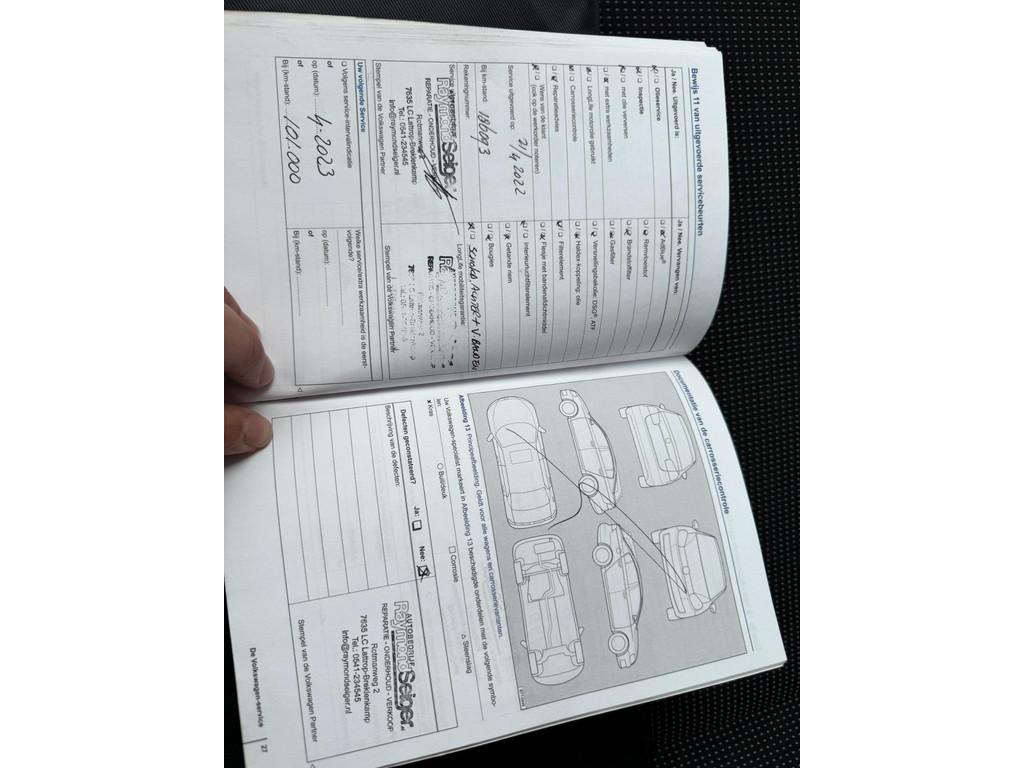 Bewijs 11 van uitgevoerde servicebeurten
Ja / Nee. Uitgevoerd is:
Olieservice
Inspectie
met olie verversen
met extra werkzaamheden
LongLife motorolie gebruikt
Carrosseriecontrole
Reparatieadvies
Wens van de klant
(ook op de werkorder noteren)
Service uitgevoerd op: 21/4 2022
Bij km-stand: 186093
Rekeningnummer:
Service
AUTOBEDRIJF
Raymond Seiger
REPARATIE - ONDERHOUD - VERKOOP
Rotmanweg 2
7635 LC Lattrop-Breklenkamp
Tel.: 0541-234545
info@raymondseiger.nl
Stempel van de Volkswagen Partner
Uw volgende Service
Volgens service-intervalindicatie
of
op (datum): 4-2023
of
Bij (km-stand): 101.000
Ja / Nee. Vervangen van:
AdBlue®
Remvloeistof
Brandstoffilter
Gasfilter
Versnellingsbakolie: DSG®, ATF
Haldex-koppeling: olie
Filterelement
Flesje met bandenafdichtmiddel
Interieurluchtfilterelement
Getande riem
Bougies
LongLife mobiliteitsgarantie:
Stempel van de Volkswagen Partner
Welke service/extra werkzaamheid is de eerst-
volgende?
op (datum):
of
Bij (km-stand):
Documentatie van de carrosseriecontrole
Afbeelding 13 Principeafbeelding. Geldt voor alle wagens en carrosserievarianten.
Uw Volkswagen-specialist markeert in Afbeelding 13 beschadigde onderdelen met de volgende symbo-
len:
x Kras
Buil/deuk
Corrosie
Steenslag
Defecten geconstateerd? Ja: Nee:
Beschrijving van de defecten:
AUTOBEDRIJF
Raymond Seiger.nl
REPARATIE - ONDERHOUD - VERKOOP
Rotmanweg 2
7635 LC Lattrop-Breklenkamp
Tel.: 0541-234545
info@raymondseiger.nl
Stempel van de Volkswagen Partner
De Volkswagen-service 27